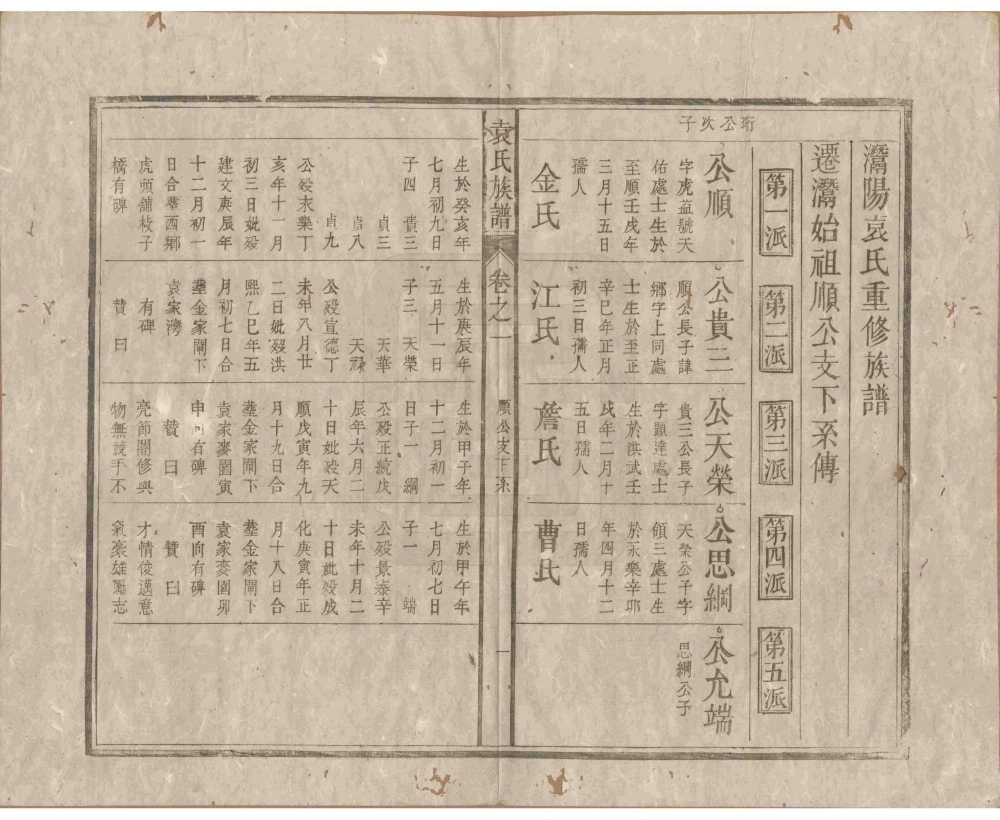 灊陽袁氏重修族譜
遷灊始祖順公支下系傳
第一派
第二派
第三派
第四派
第五派
珩公次子
公順
字虎益號天
佑處士生於
至順壬戌年
三月十五日
孺人
金氏
生於癸亥年
七月初九日
子四 貴三
貞三
貞八
貞九
公殁永樂丁
亥年十一月
初三日妣殁
建文庚辰年
十二月初一
日合塟西鄉
虎頭舖枝子
橋有碑
公貴三
順公長子諱
鄉字上同處
士生於至正
辛巳年正月
初三日孺人
江氏
生於庚辰年
五月十一日
子三 天榮
天華
天祿
公殁宣德丁
未年八月廿
二日妣殁洪
熙乙巳年五
月初七日合
塟金家閘下
袁家灣
有碑
贊曰
公天榮
貴三公長子
字顯達處士
生於洪武壬
戌年二月十
五日孺人
詹氏
生於甲子年
十二月初一
日子一 綱
公殁正統戊
辰年六月二
十日妣殁天
順戊寅年九
月十九日合
塟金家閘下
袁家麥園寅
申向有碑
贊曰
亮節闇修與
物無競手不
公思綱
天榮公子字
領三處士生
於永樂辛卯
年四月十二
日孺人
曹氏
生於甲午年
七月初七日
子一 端
公殁景泰辛
未年十月二
十日妣殁成
化庚寅年正
月十八日合
塟金家閘下
袁家麥園卯
酉向有碑
贊曰
才情俊邁意
氣豪雄屬志
公允端
思綱公子
袁氏族譜
卷之一
順公支下系
一